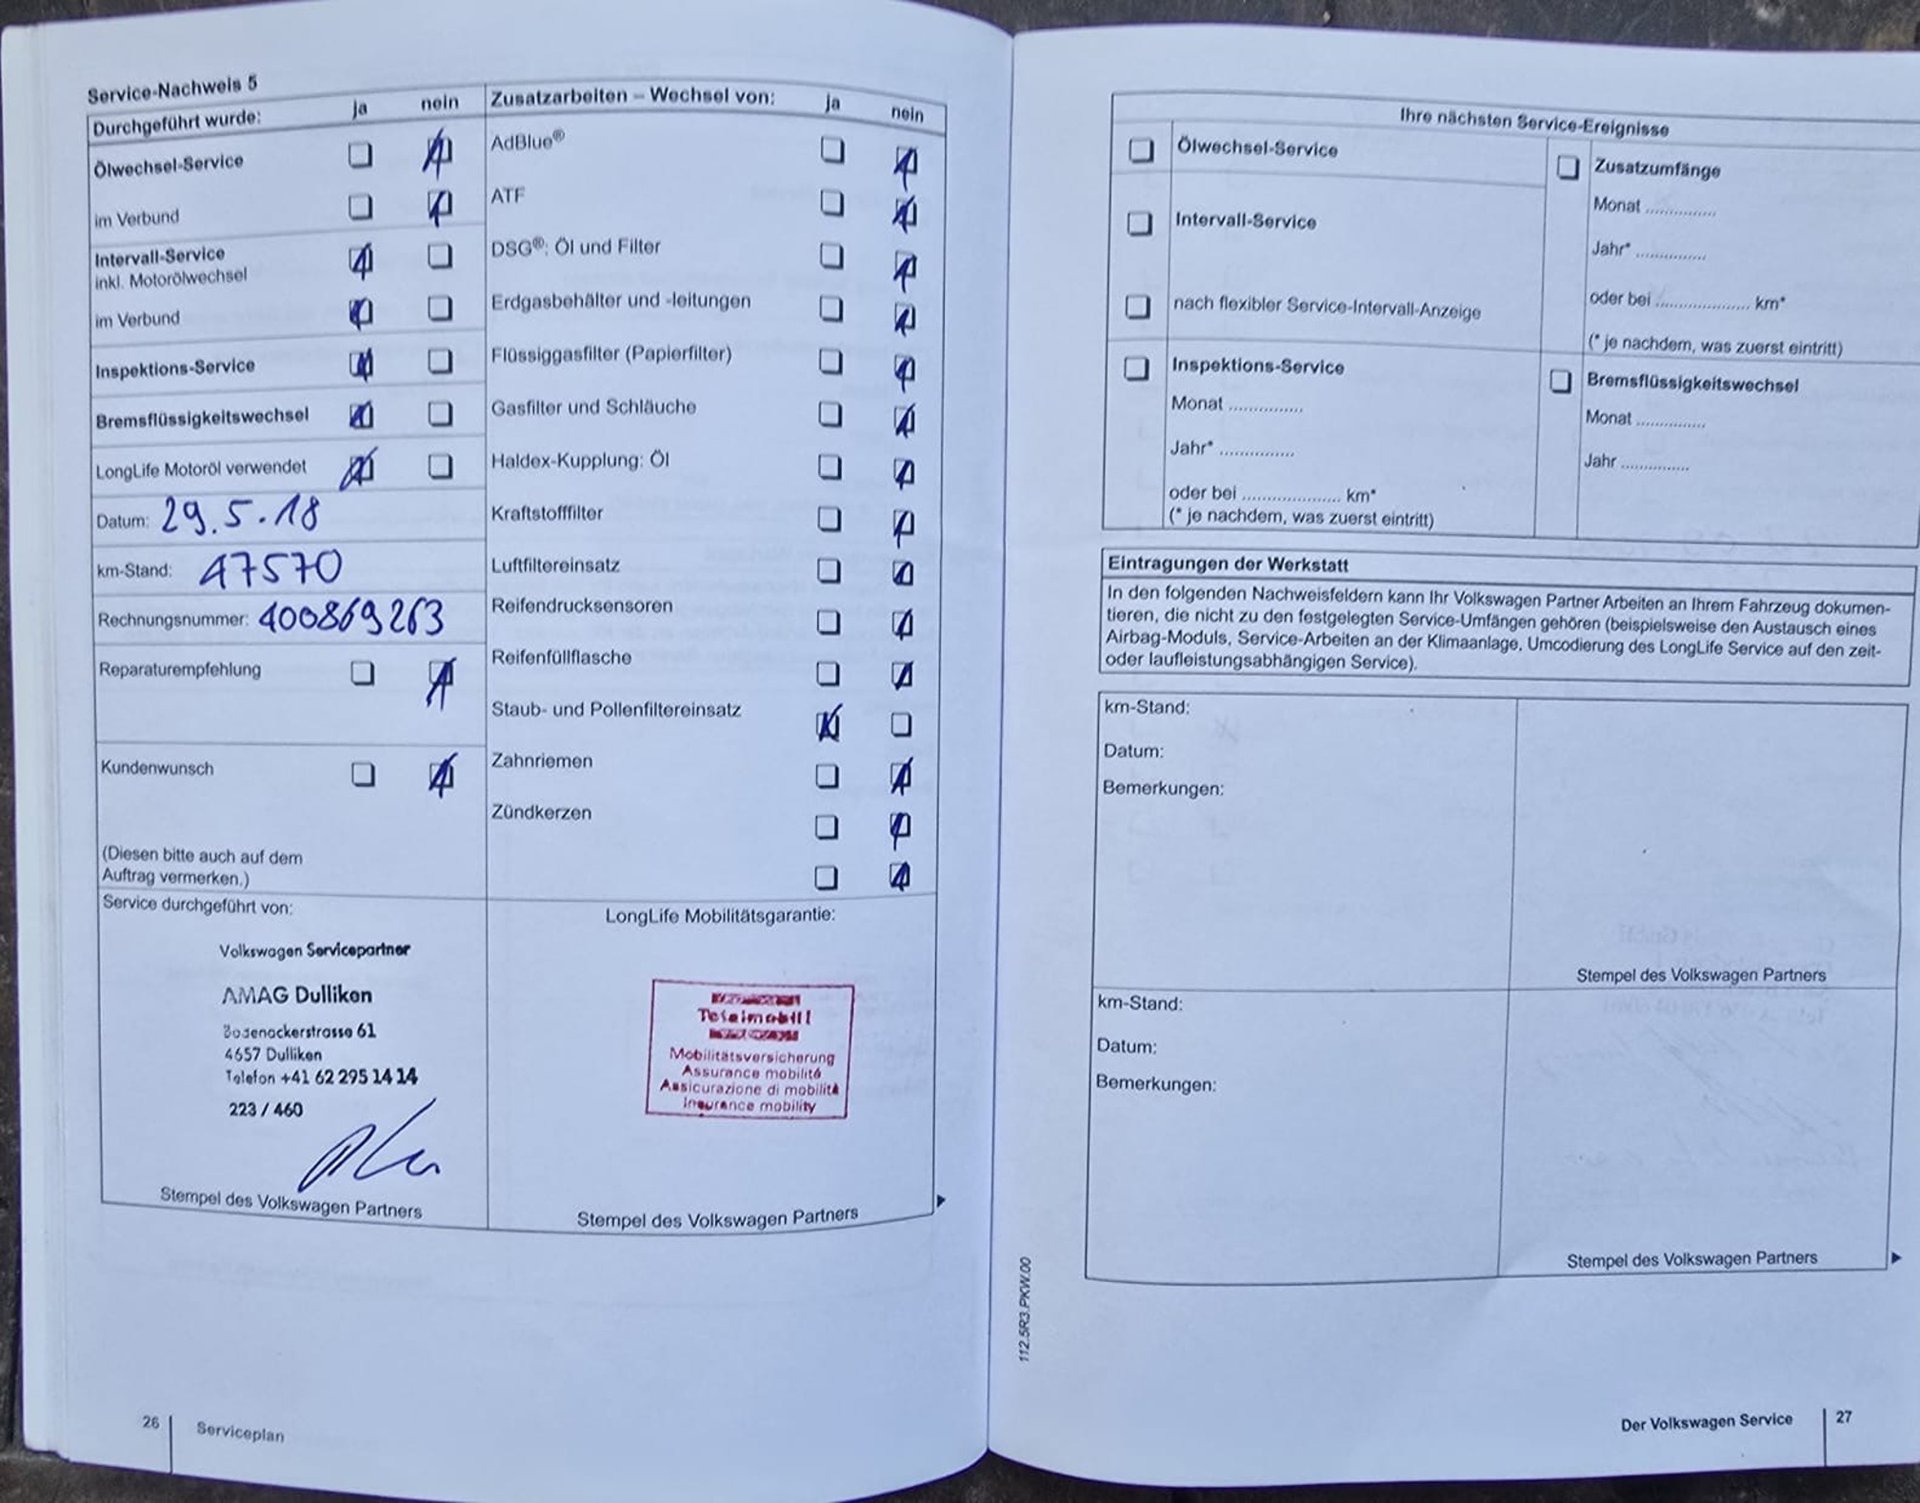 Service-Nachweis 5
Durchgeführt wurde: ja nein
Ölwechsel-Service
im Verbund
Intervall-Service
inkl. Motorölwechsel
im Verbund
Inspektions-Service
Bremsflüssigkeitswechsel
LongLife Motoröl verwendet
Datum: 29.5.18
km-Stand: 47570
Rechnungsnummer: 400869263
Reparaturempfehlung
Kundenwunsch
(Diesen bitte auch auf dem
Auftrag vermerken.)
Service durchgeführt von:
Volkswagen Servicepartner
AMAG Dulliken
Bodenackerstrasse 61
4657 Dulliken
Telefon +41 62 295 14 14
223 / 460
Stempel des Volkswagen Partners
Zusatzarbeiten – Wechsel von: ja nein
AdBlue®
ATF
DSG®: Öl und Filter
Erdgasbehälter und -leitungen
Flüssiggasfilter (Papierfilter)
Gasfilter und Schläuche
Haldex-Kupplung: Öl
Kraftstofffilter
Luftfiltereinsatz
Reifendrucksensoren
Reifenfüllflasche
Staub- und Pollenfiltereinsatz
Zahnriemen
Zündkerzen
LongLife Mobilitätsgarantie:
Totalmobil!
Mobilitätsversicherung
Assurance mobilité
Assicurazione di mobilità
Insurance mobility
Stempel des Volkswagen Partners
26 Serviceplan
Ihre nächsten Service-Ereignisse
Ölwechsel-Service
Intervall-Service
nach flexibler Service-Intervall-Anzeige
Inspektions-Service
Monat ...............
Jahr* ...............
oder bei .................... km*
(* je nachdem, was zuerst eintritt)
Zusatzumfänge
Monat ...............
Jahr* ...............
oder bei .................... km*
(* je nachdem, was zuerst eintritt)
Bremsflüssigkeitswechsel
Monat ...............
Jahr ...............
Eintragungen der Werkstatt
In den folgenden Nachweisfeldern kann Ihr Volkswagen Partner Arbeiten an Ihrem Fahrzeug dokumen-
tieren, die nicht zu den festgelegten Service-Umfängen gehören (beispielsweise den Austausch eines
Airbag-Moduls, Service-Arbeiten an der Klimaanlage, Umcodierung des LongLife Service auf den zeit-
oder laufleistungsabhängigen Service).
km-Stand:
Datum:
Bemerkungen:
Stempel des Volkswagen Partners
km-Stand:
Datum:
Bemerkungen:
Stempel des Volkswagen Partners
112.5R3.PKW.00
Der Volkswagen Service 27